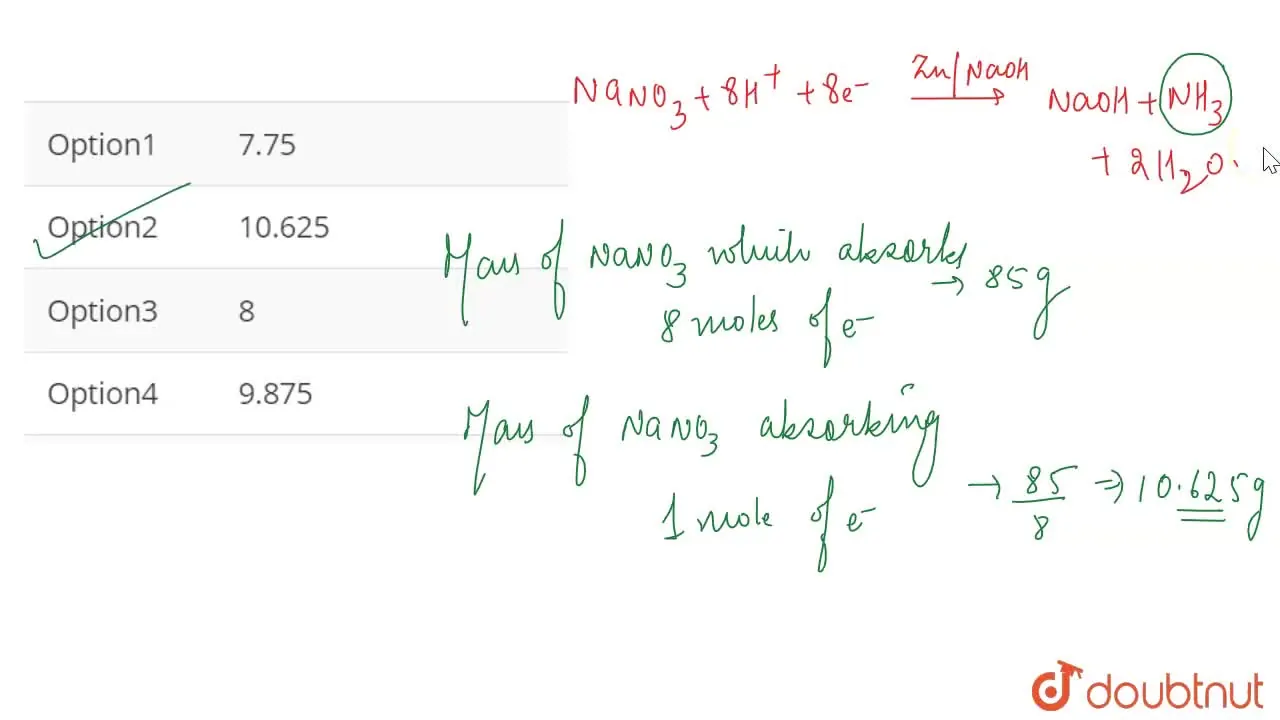 NaNO3 + 8H+ + 8e- Zn/NaOH → NaOH + NH3
+ 2H2O.
Option1 7.75
Option2 10.625
Option3 8
Option4 9.875
Mass of NaNO3 which absorbs
8 moles of e- → 85g
Mass of NaNO3 absorking
1 mole of e- → 85/8 ⇒ 10.625g
doubtnut